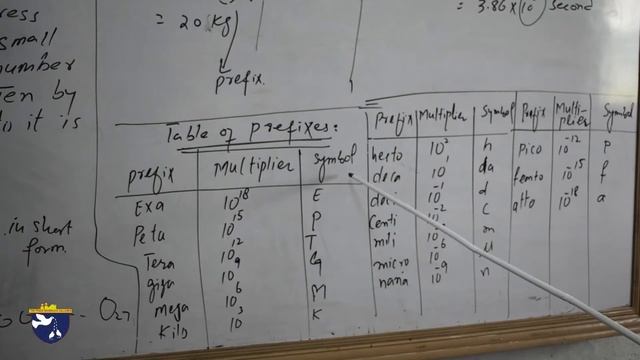 ress
small
number
en by
it is
in short
form.
= 20 Kg
prefix
= 3.86 × 10 second
Table of prefixes:
prefix Multiplier symbol
Exa 10^18 E
Peta 10^15 P
Tera 10^12 T
giga 10^9 G
mega 10^6 M
Kilo 10^3 K
Prefix Multiplier Symbol
hecto 10^2 h
deca 10^1 da
deci 10^-1 d
Centi 10^-2 c
mili m
micro 10^-6 u
nana 10^-9 n
Prefix Multi-
plier Symbol
pico 10^-12 p
femto 10^-15 f
atto 10^-18 a